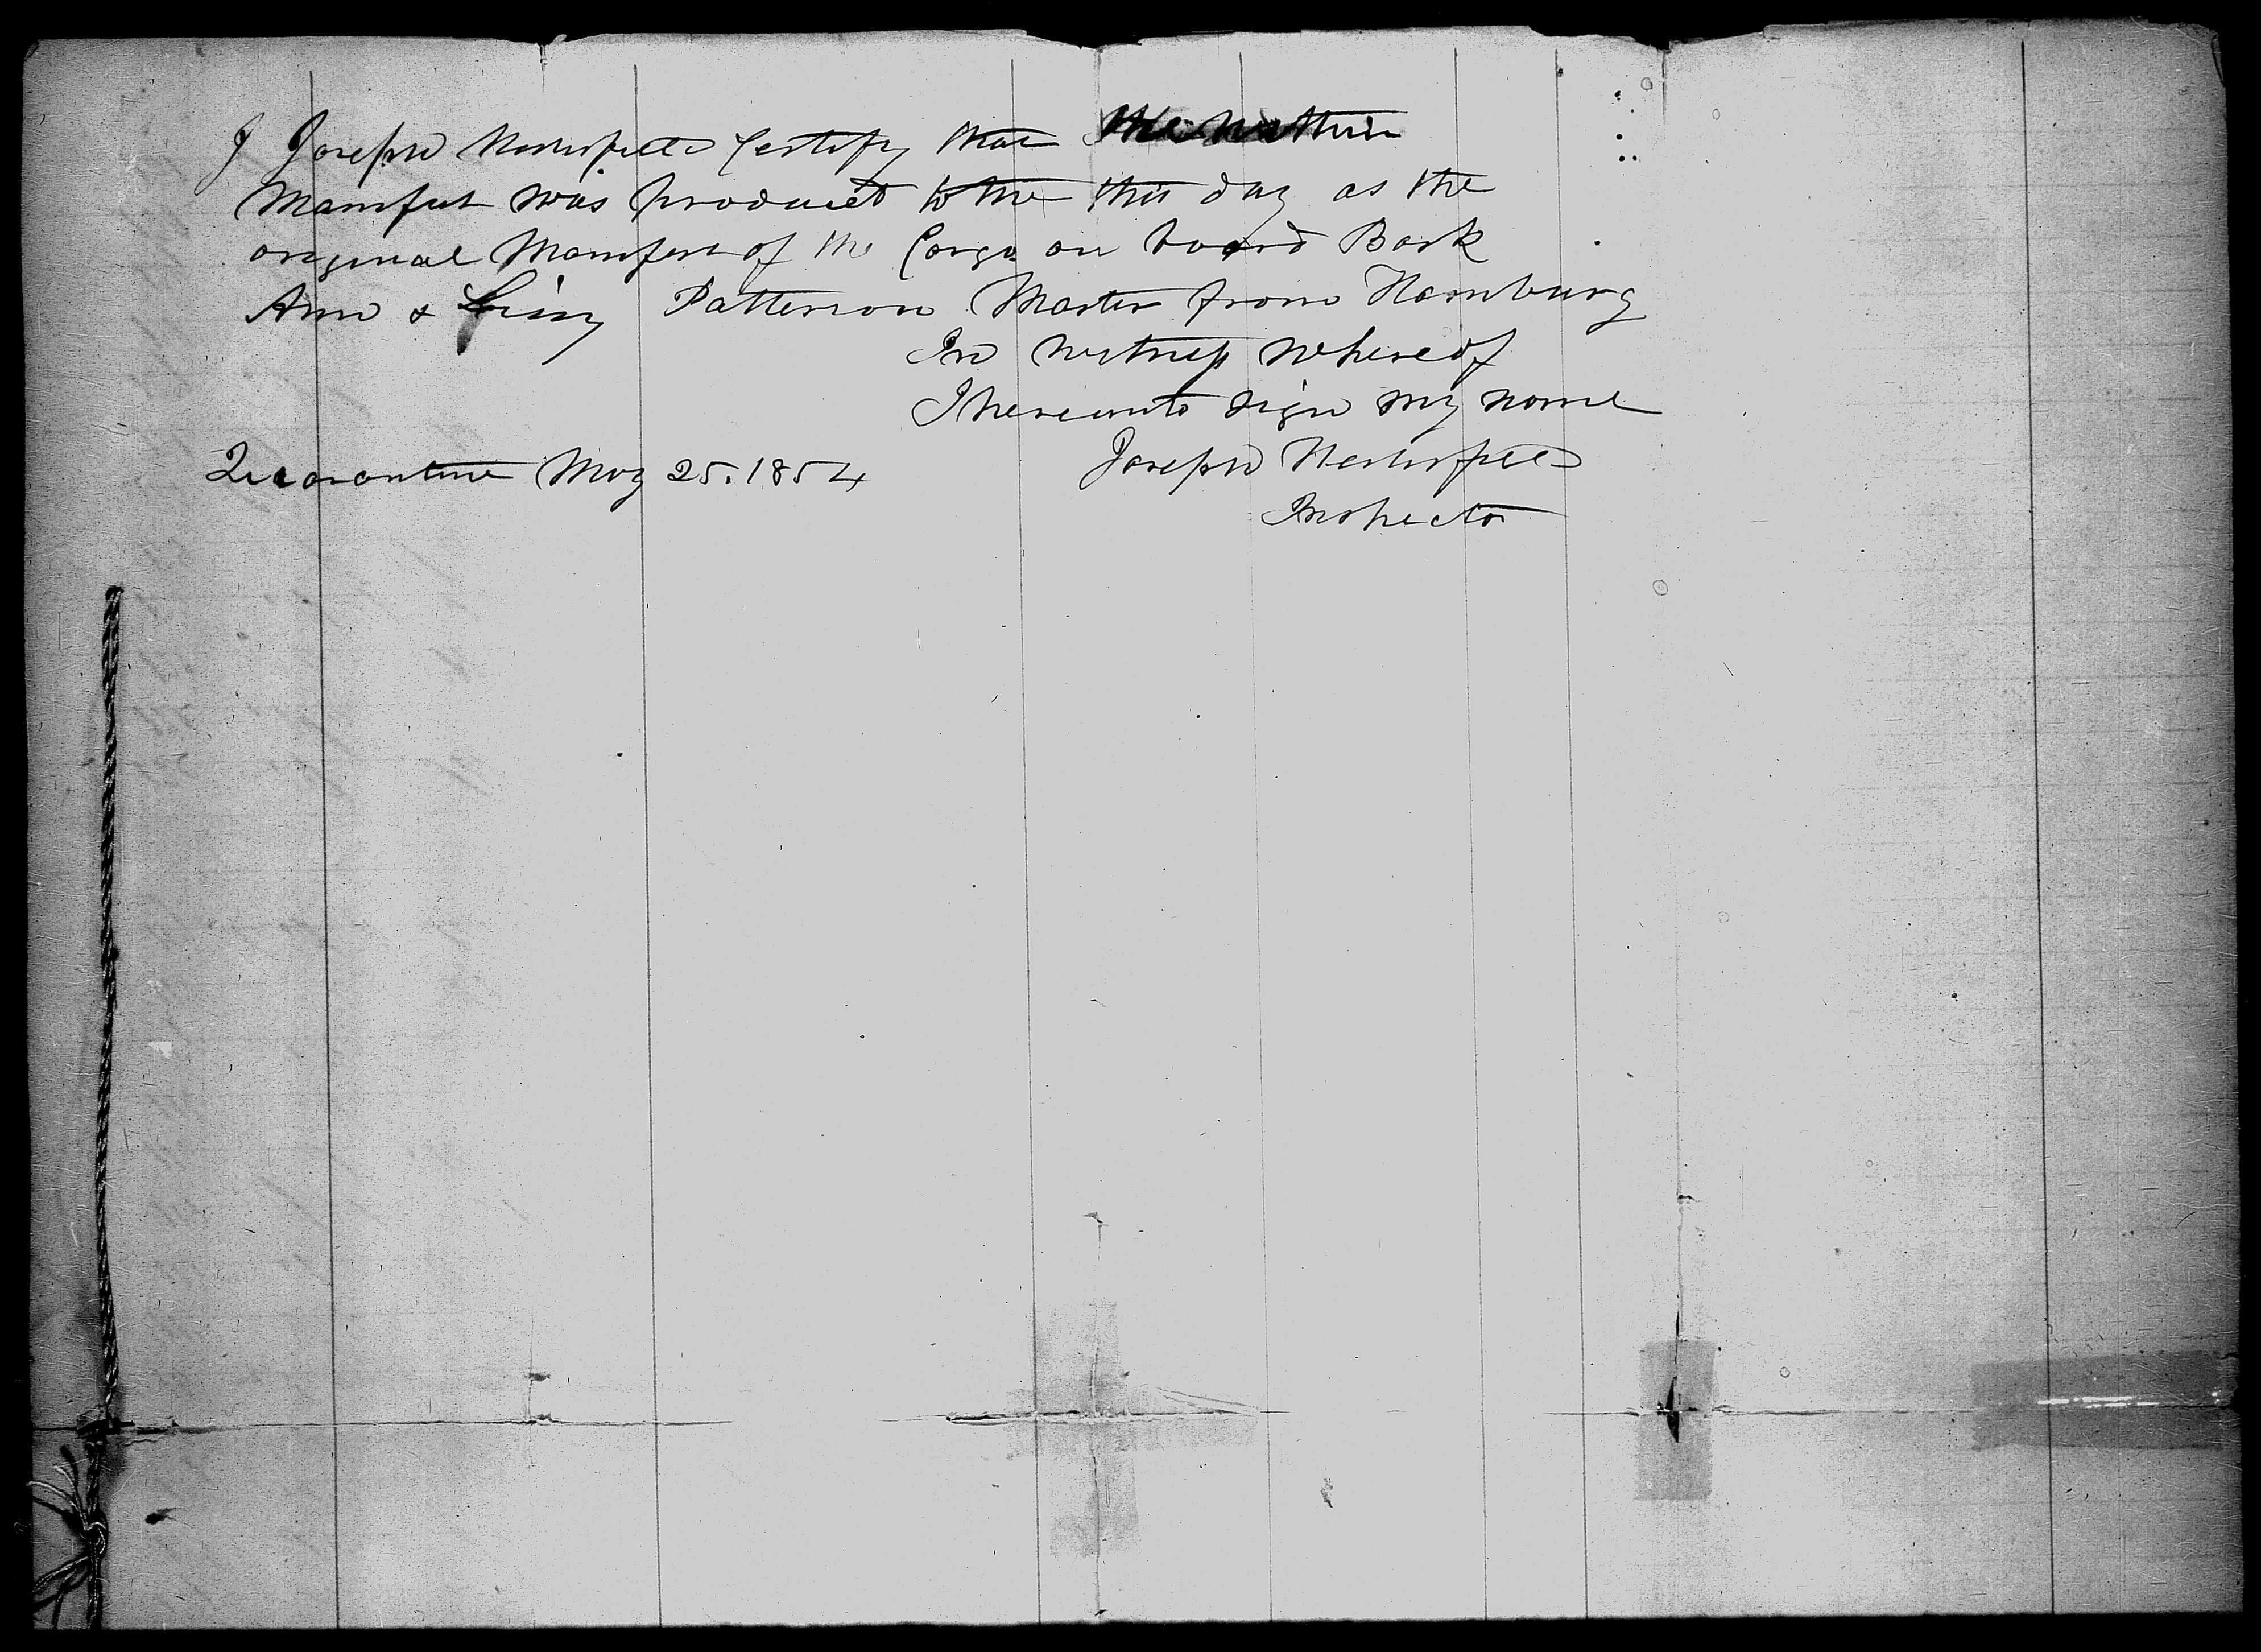 I Joseph Certify that the within
Manifest was produced to me this day as the
original Manifest of the Cargo on board Bark
Ann & Lizzy Patterson Master from Hamburg
In witness whereof
I hereunto sign my name
Quarantine May 25. 1854 Joseph
Inspector